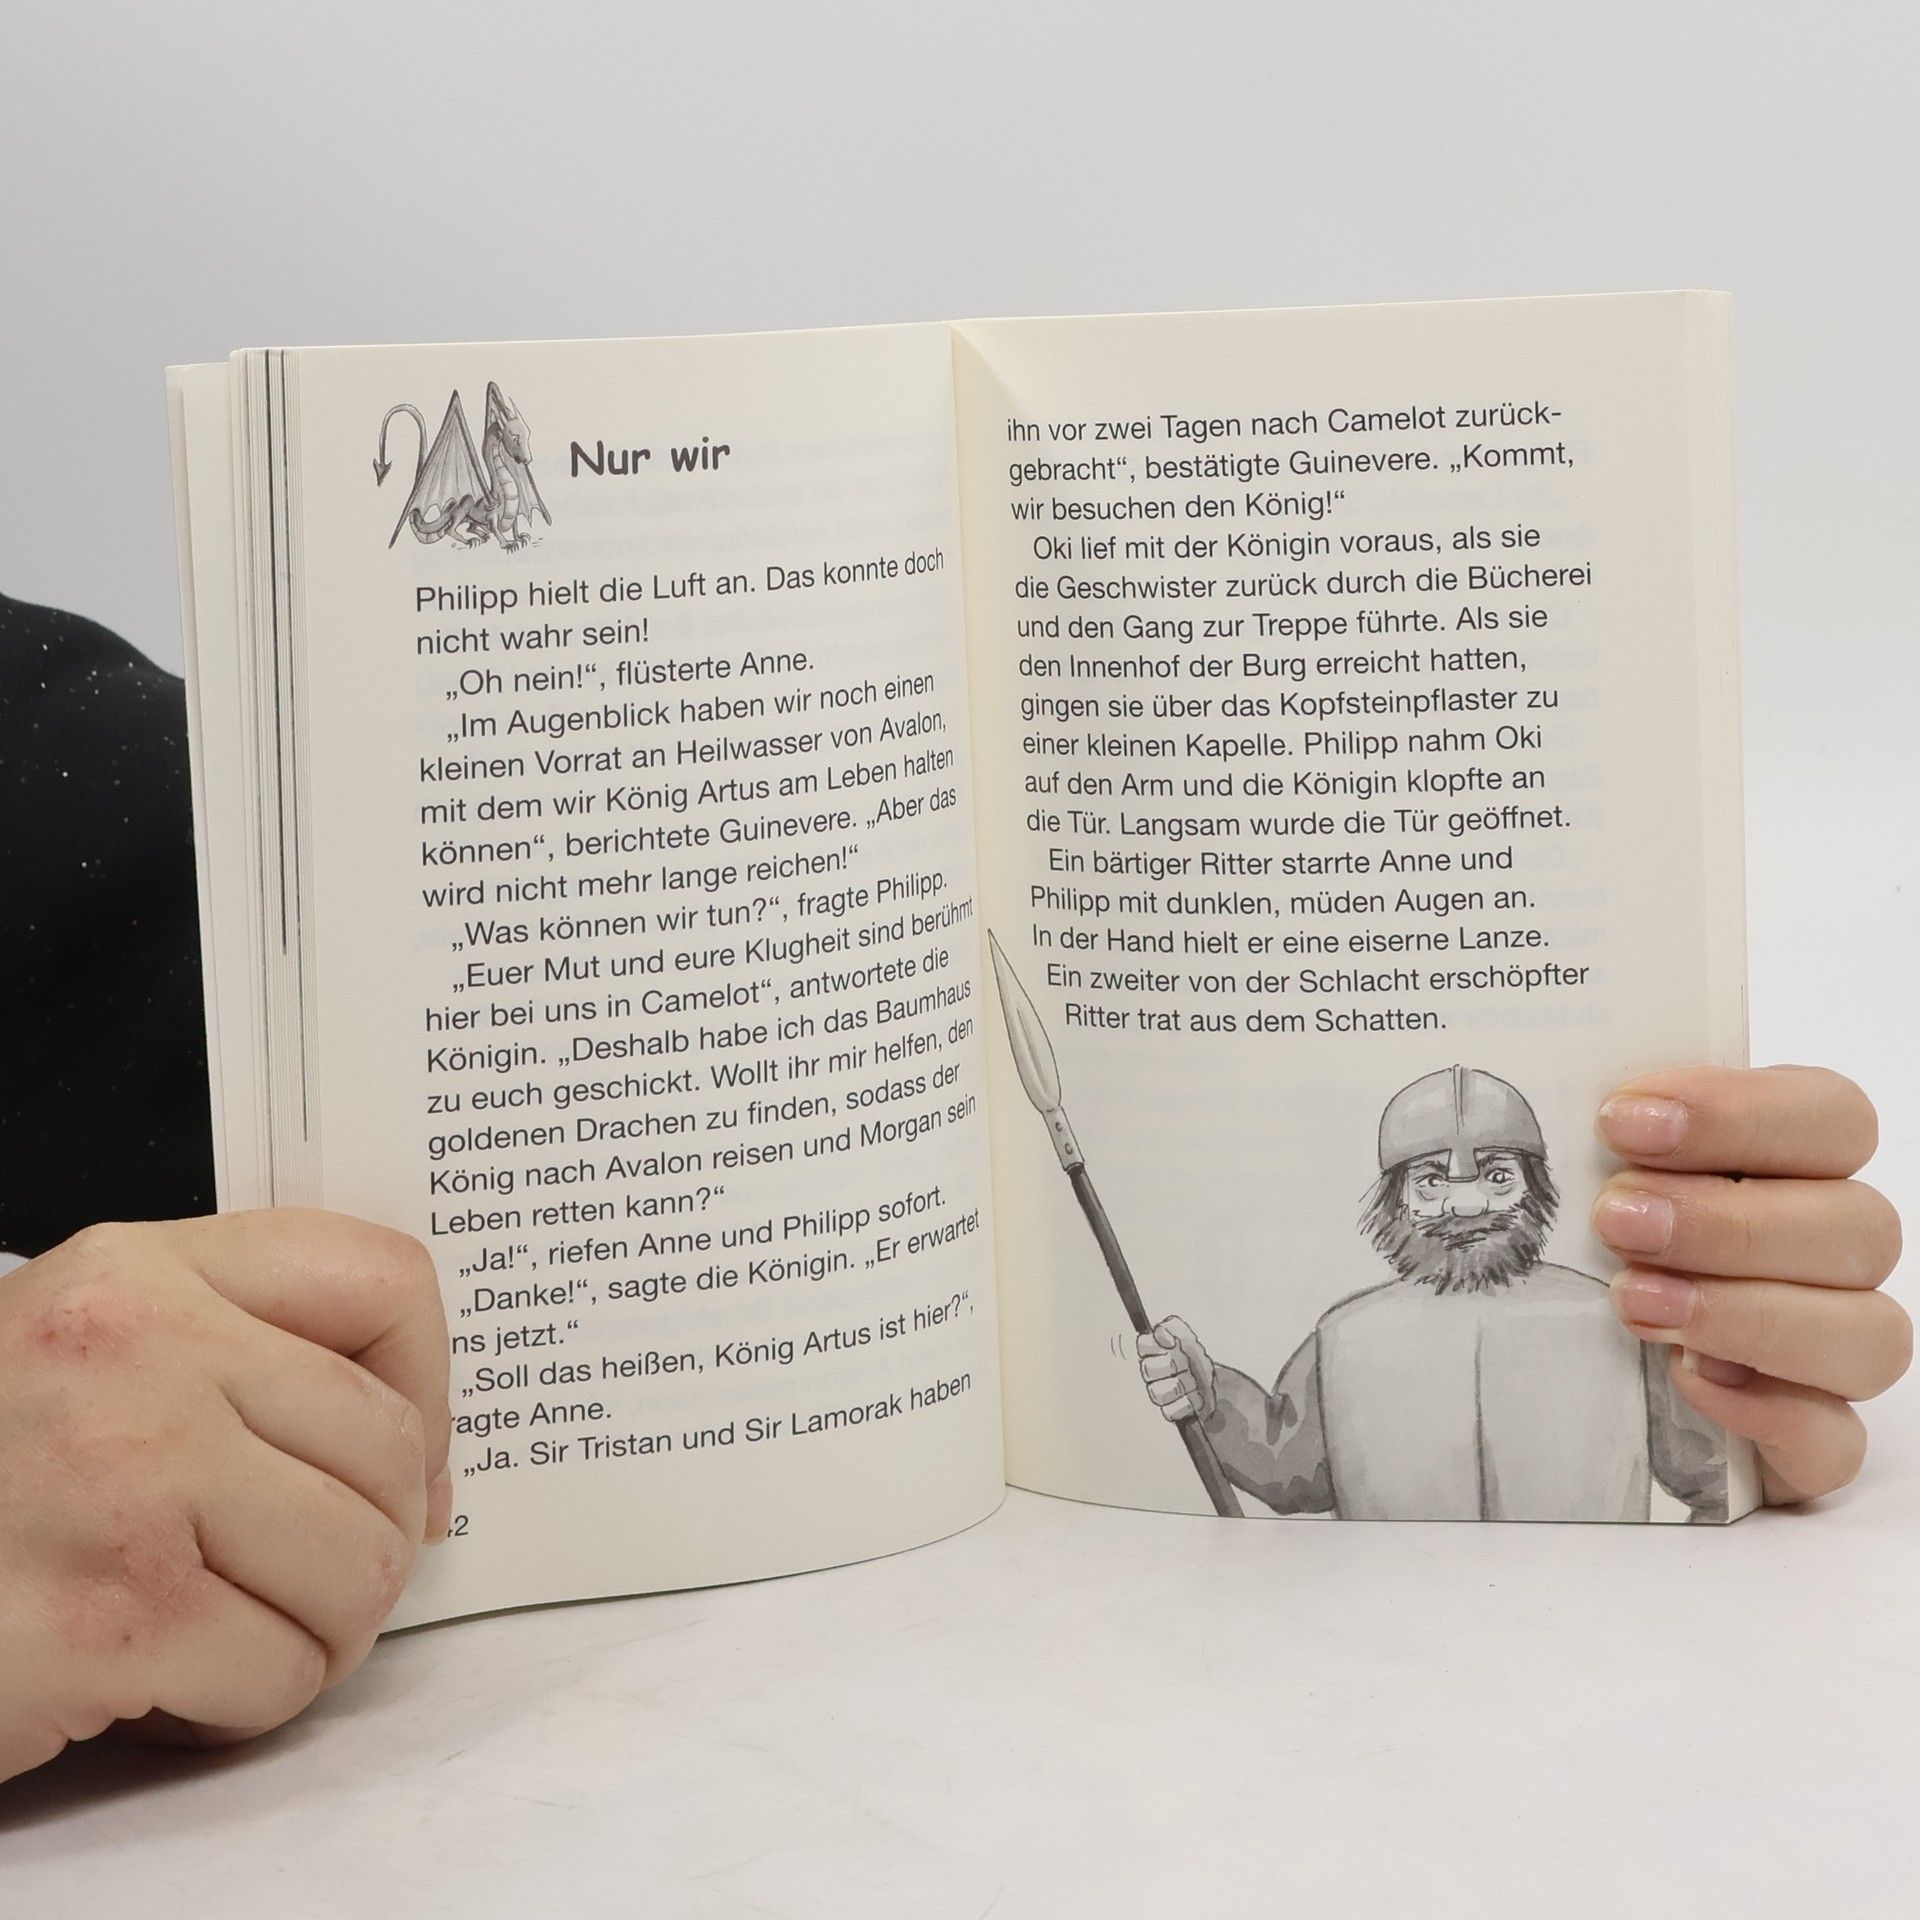 Nur wir
Philipp hielt die Luft an. Das konnte doch
nicht wahr sein!
„Oh nein!“, flüsterte Anne.
„Im Augenblick haben wir noch einen
kleinen Vorrat an Heilwasser von Avalon,
mit dem wir König Artus am Leben halten
können“, berichtete Guinevere. „Aber das
wird nicht mehr lange reichen!“
„Was können wir tun?“, fragte Philipp.
„Euer Mut und eure Klugheit sind berühmt
hier bei uns in Camelot“, antwortete die
Königin. „Deshalb habe ich das Baumhaus
zu euch geschickt. Wollt ihr mir helfen, den
goldenen Drachen zu finden, sodass der
König nach Avalon reisen und Morgan sein
Leben retten kann?“
„Ja!“, riefen Anne und Philipp sofort.
„Danke!“, sagte die Königin. „Er erwartet
ns jetzt.“
„Soll das heißen, König Artus ist hier?“,
ragte Anne.
„Ja. Sir Tristan und Sir Lamorak haben
42
ihn vor zwei Tagen nach Camelot zurück-
gebracht“, bestätigte Guinevere. „Kommt,
wir besuchen den König!“
Oki lief mit der Königin voraus, als sie
die Geschwister zurück durch die Bücherei
und den Gang zur Treppe führte. Als sie
den Innenhof der Burg erreicht hatten,
gingen sie über das Kopfsteinpflaster zu
einer kleinen Kapelle. Philipp nahm Oki
auf den Arm und die Königin klopfte an
die Tür. Langsam wurde die Tür geöffnet.
Ein bärtiger Ritter starrte Anne und
Philipp mit dunklen, müden Augen an.
In der Hand hielt er eine eiserne Lanze.
Ein zweiter von der Schlacht erschöpfter
Ritter trat aus dem Schatten.